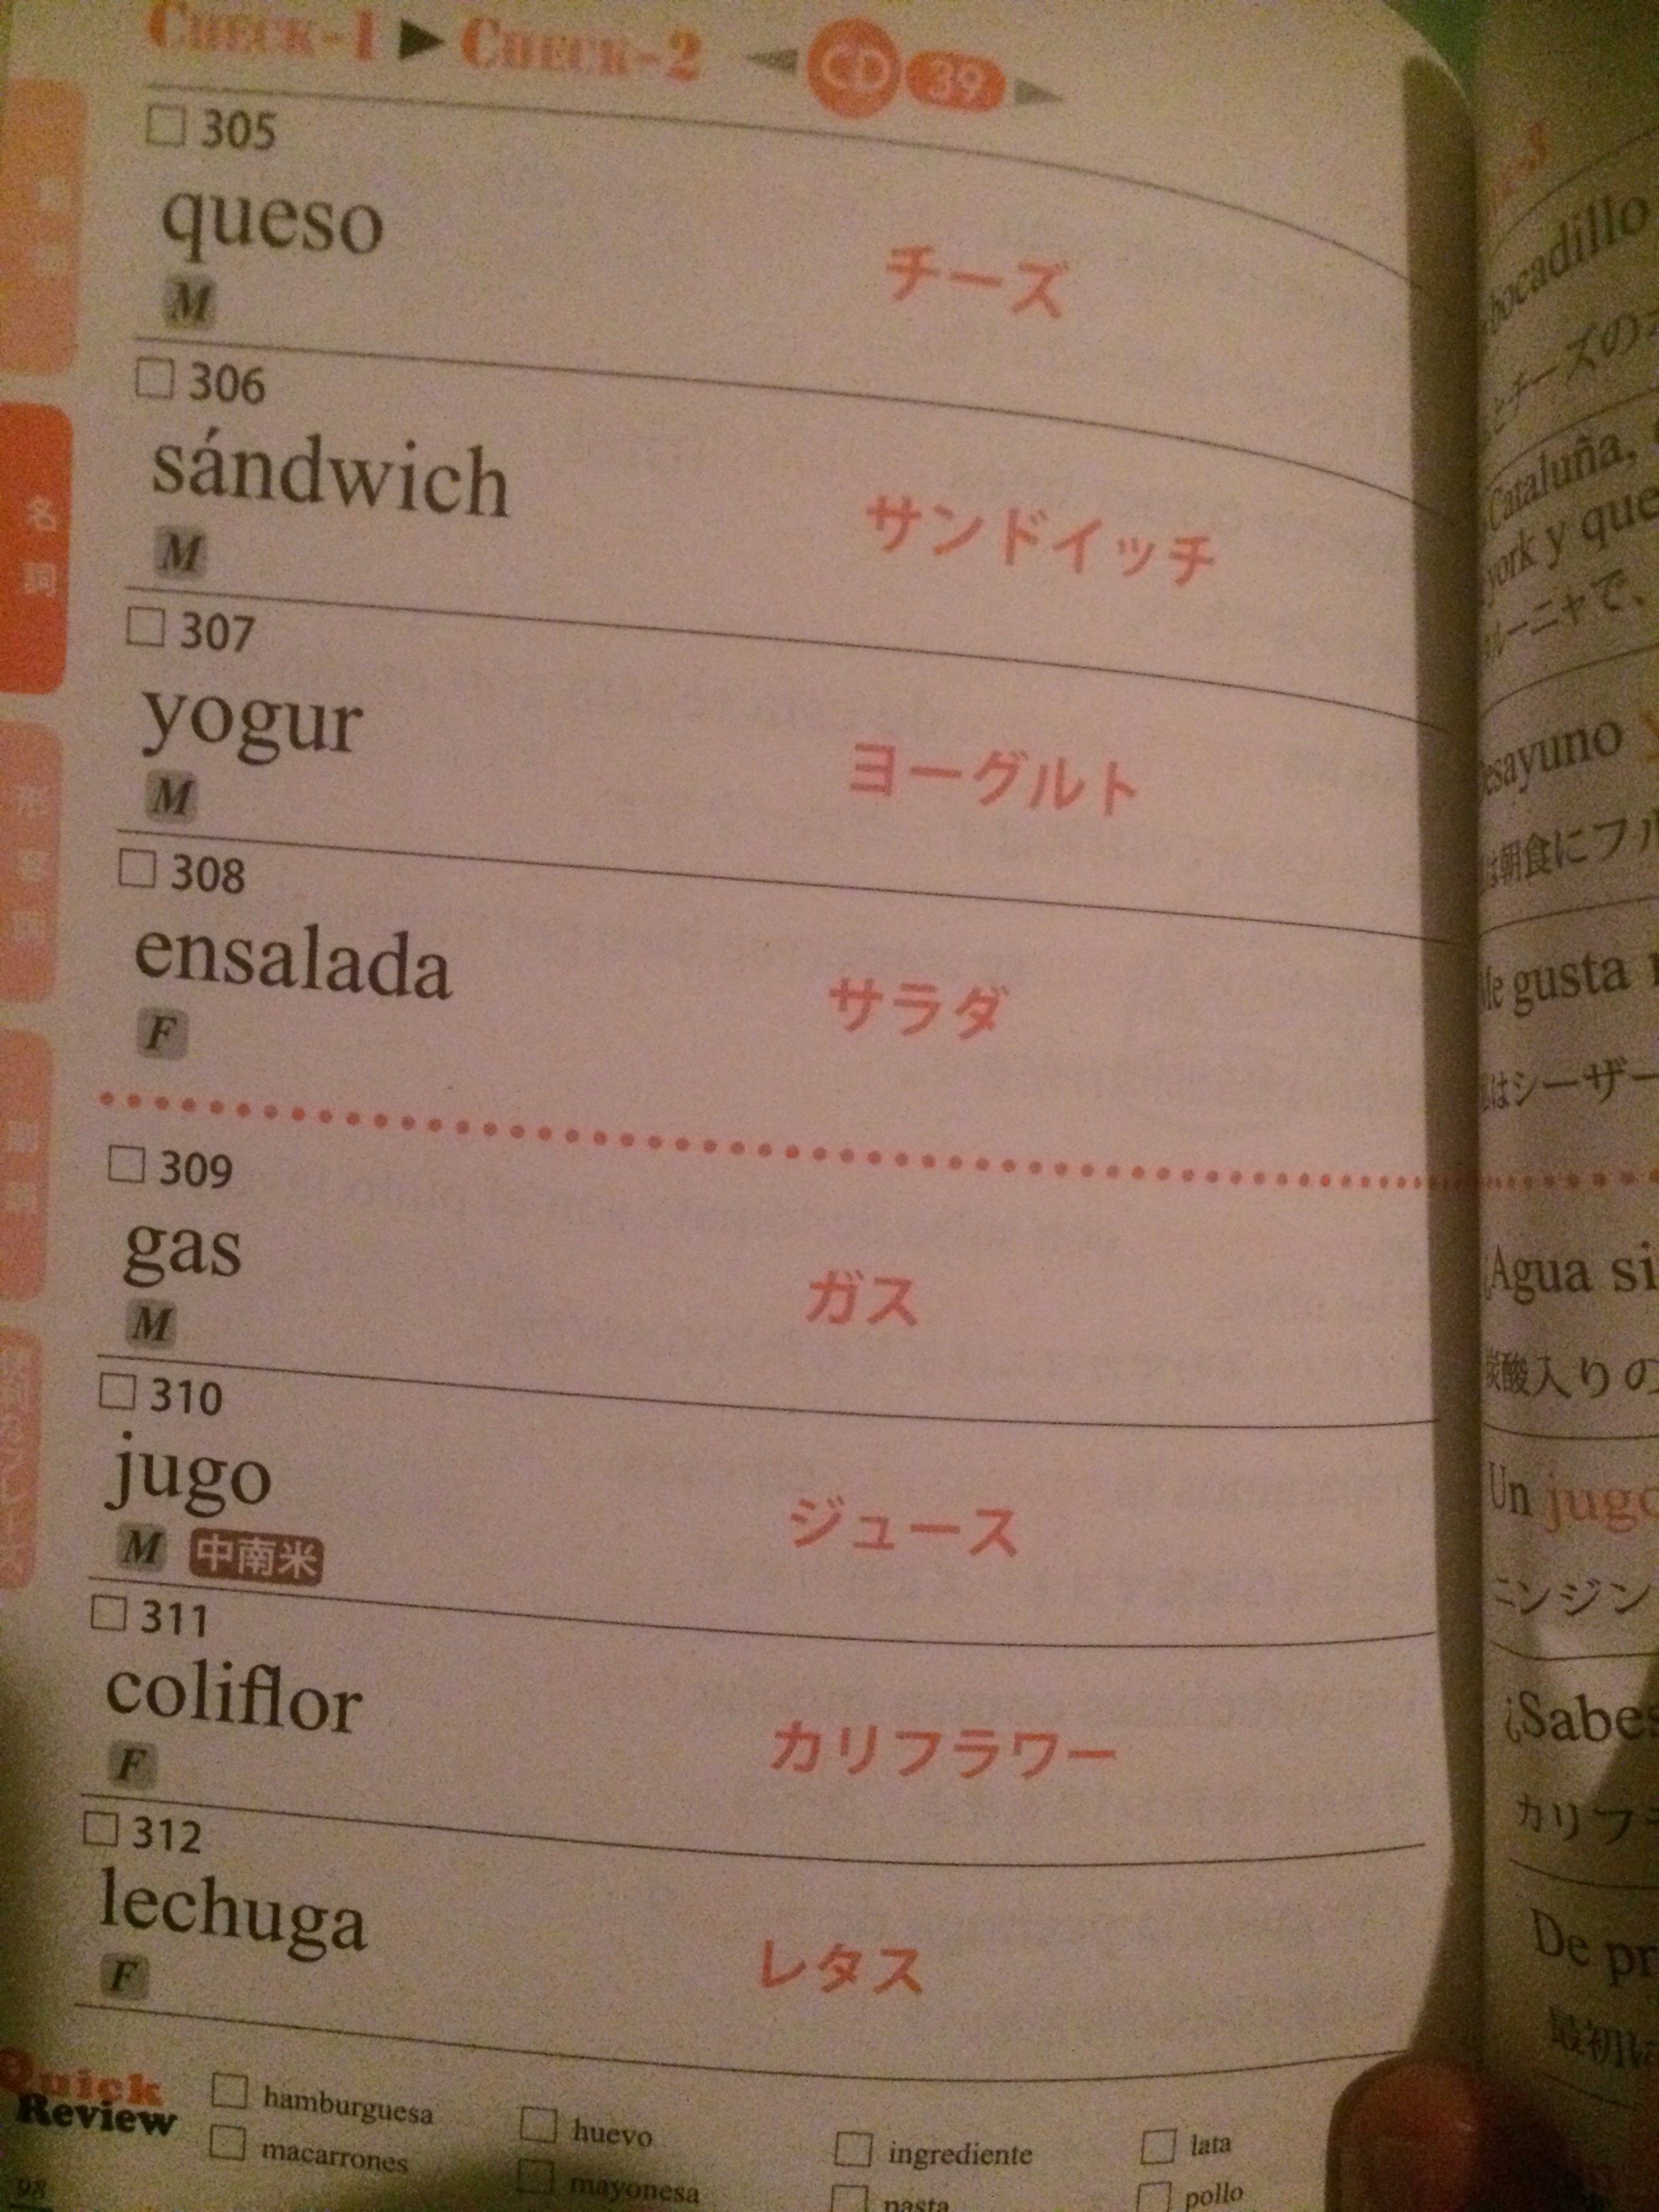 CHECK-1 ▶ CHECK-2 ◀ CD 39 ▶
□ 305
queso
M
チーズ
□ 306
sándwich
M
サンドイッチ
□ 307
yogur
M
ヨーグルト
□ 308
ensalada
F
サラダ
□ 309
gas
M
ガス
□ 310
jugo
M 中南米
ジュース
□ 311
coliflor
F
カリフラワー
□ 312
lechuga
F
レタス
Quick
Review
□ hamburguesa □ huevo □ ingrediente □ lata
□ macarrones □ mayonesa □ pasta □ pollo
98
名詞
bocadillo
チーズの
Cataluña,
york y que
ルーニャで、
朝食にフル
Me gusta
はシーザー
¿Agua si
炭酸入りの
Un jugo
ニンジン
¿Sabes
カリフラ
De pr
最初に